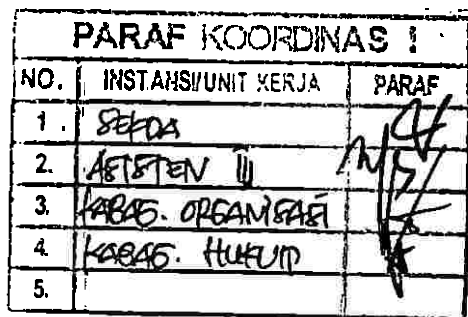 PARAF KOORDINASI
NO. INSTANSI/UNIT KERJA PARAF
1. SEKDA
2. ASISTEN III
3. KABAG. ORGANISASI
4. KABAG. HUKUM
5.